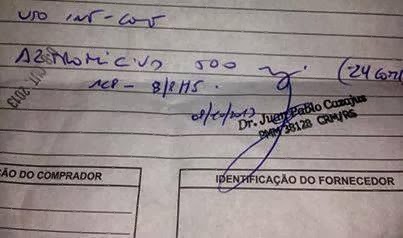 USO INT-CONT
AZITROMICINA 500 mg. (24 com
1CP - 8/8HS.
08/10/2013
Dr. Juan Pablo Cazajus
RMM 38128 CRM/RS
ÃO DO COMPRADOR
IDENTIFICAÇÃO DO FORNECEDOR